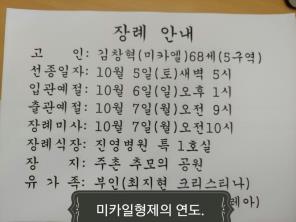 장례 안내
고 인: 김창혁(미카엘)68세(5구역)
선종일자: 10월 5일(토)새벽 5시
입관예절: 10월 6일(일)오후 1시
출관예절: 10월 7일(월)오전 9시
장례미사: 10월 7일(월)오전10시
장례식장: 진영병원 특 1호실
장 지: 주촌 추모의 공원
유 가 족: 부인(최지현 크리스티나)
레아)
미카일형제의 연도.